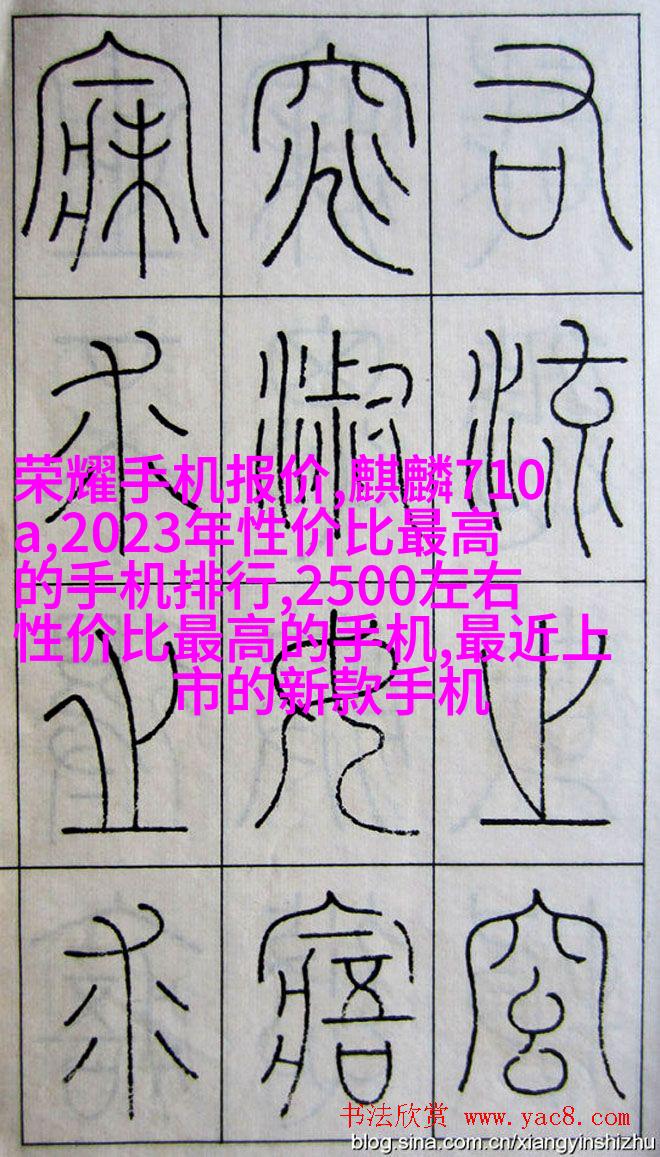 右流之窈
窕淑女寤
寐求之求
荣耀手机报价,麒麟710
a,2023年性价比最高
的手机排行,2500左右
性价比最高的手机,最近上
市的新款手机
书法欣赏 www.yac8.com
blog.sina.com.cn/xiangyinshizhu